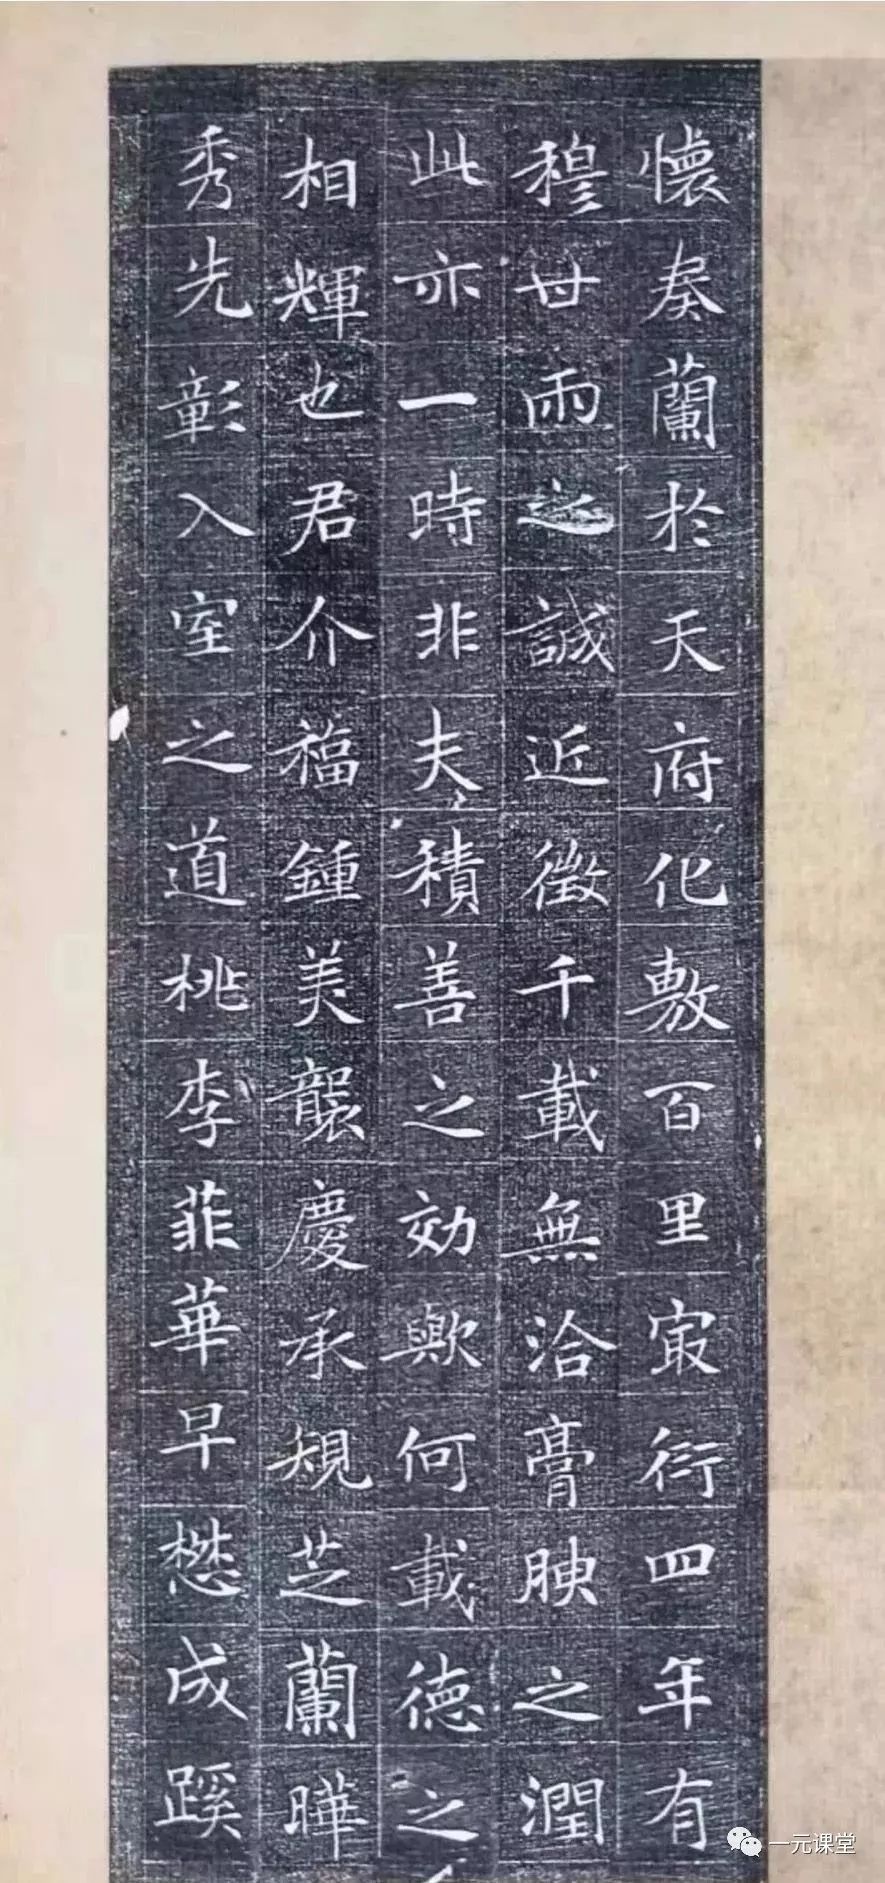 懷奏蘭於天府化敷百里冣衍四年有
穆世雨之誠近徵千載無洽膏腴之潤
此亦一時非夫積善之効歟何載德之
相輝也君介福鍾美襲慶承規芝蘭曄
秀先彰入室之道桃李菲華早懋成蹊
一元课堂